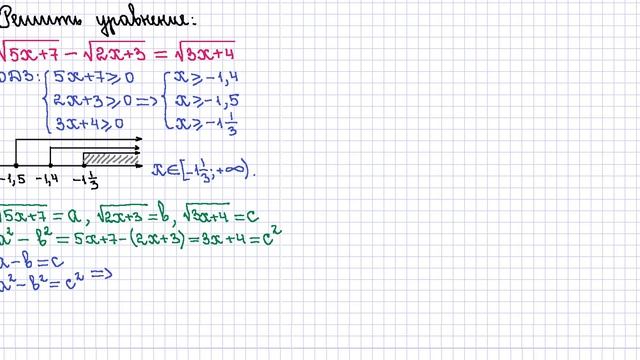 Решить уравнение:
√5x+7 − √2x+3 = √3x+4
ОДЗ: { 5x+7⩾0 { x⩾−1,4
2x+3⩾0 => x⩾−1,5
3x+4⩾0 x⩾−1 1/3
−1,5 −1,4 −1 1/3 x∈[−1 1/3; +∞).
√5x+7 = a, √2x+3 = b, √3x+4 = c
a² − b² = 5x+7−(2x+3)=3x+4=c²
a−b=c
a²−b²=c² =>